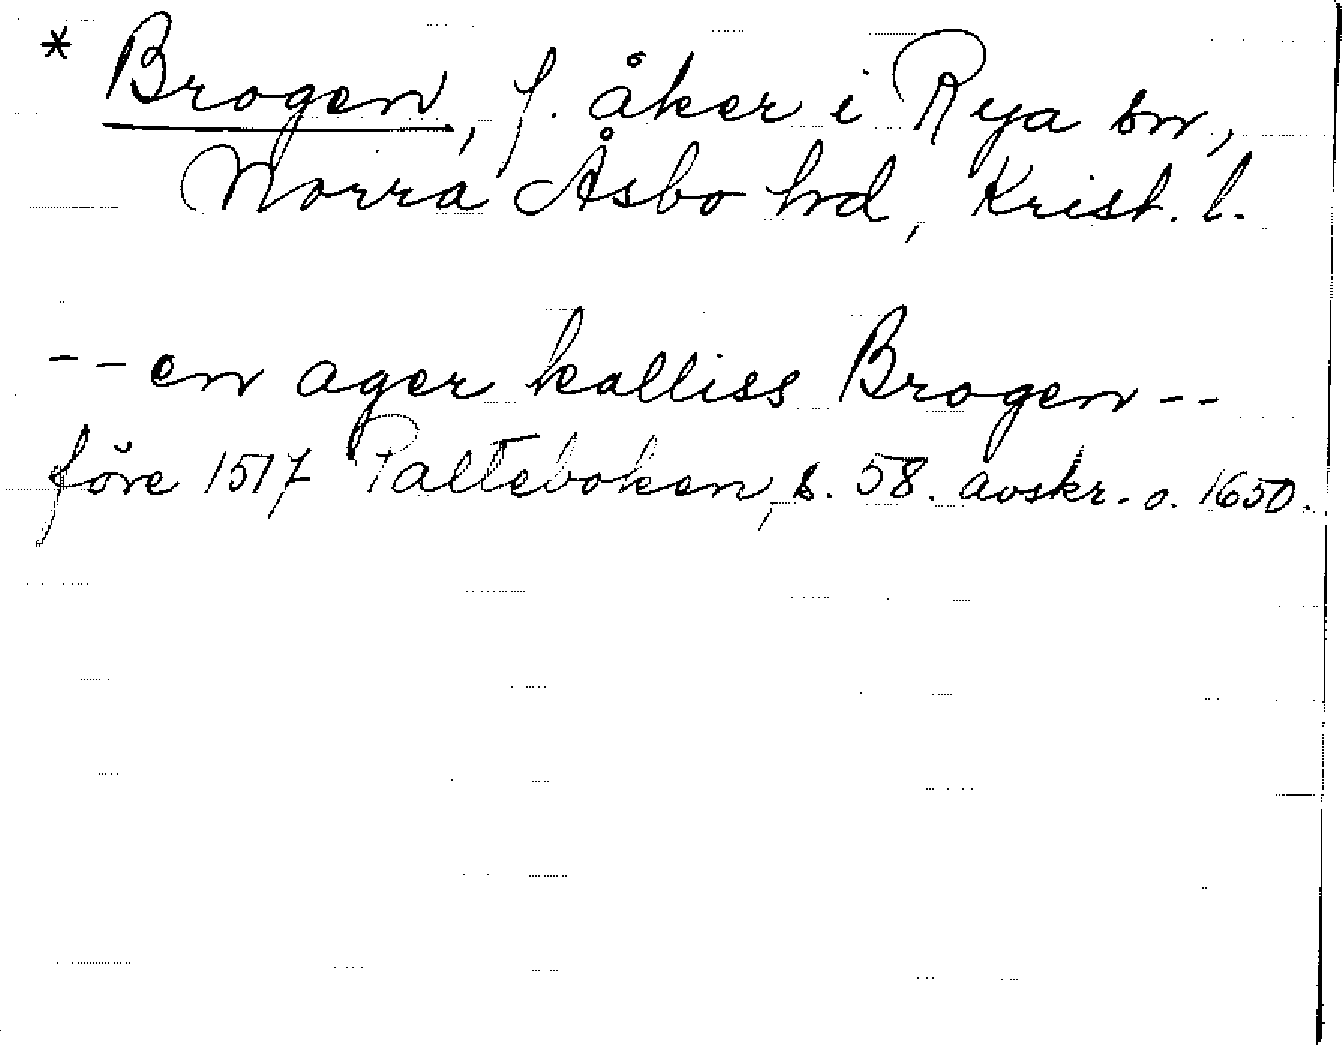 * Brogen, f. åker i Rya sn.,
Norra Åsbo hd, Krist. l.
-- en ager kalliss Brogen --
före 1517 Palteboken, s. 58. avskr. o. 1650.